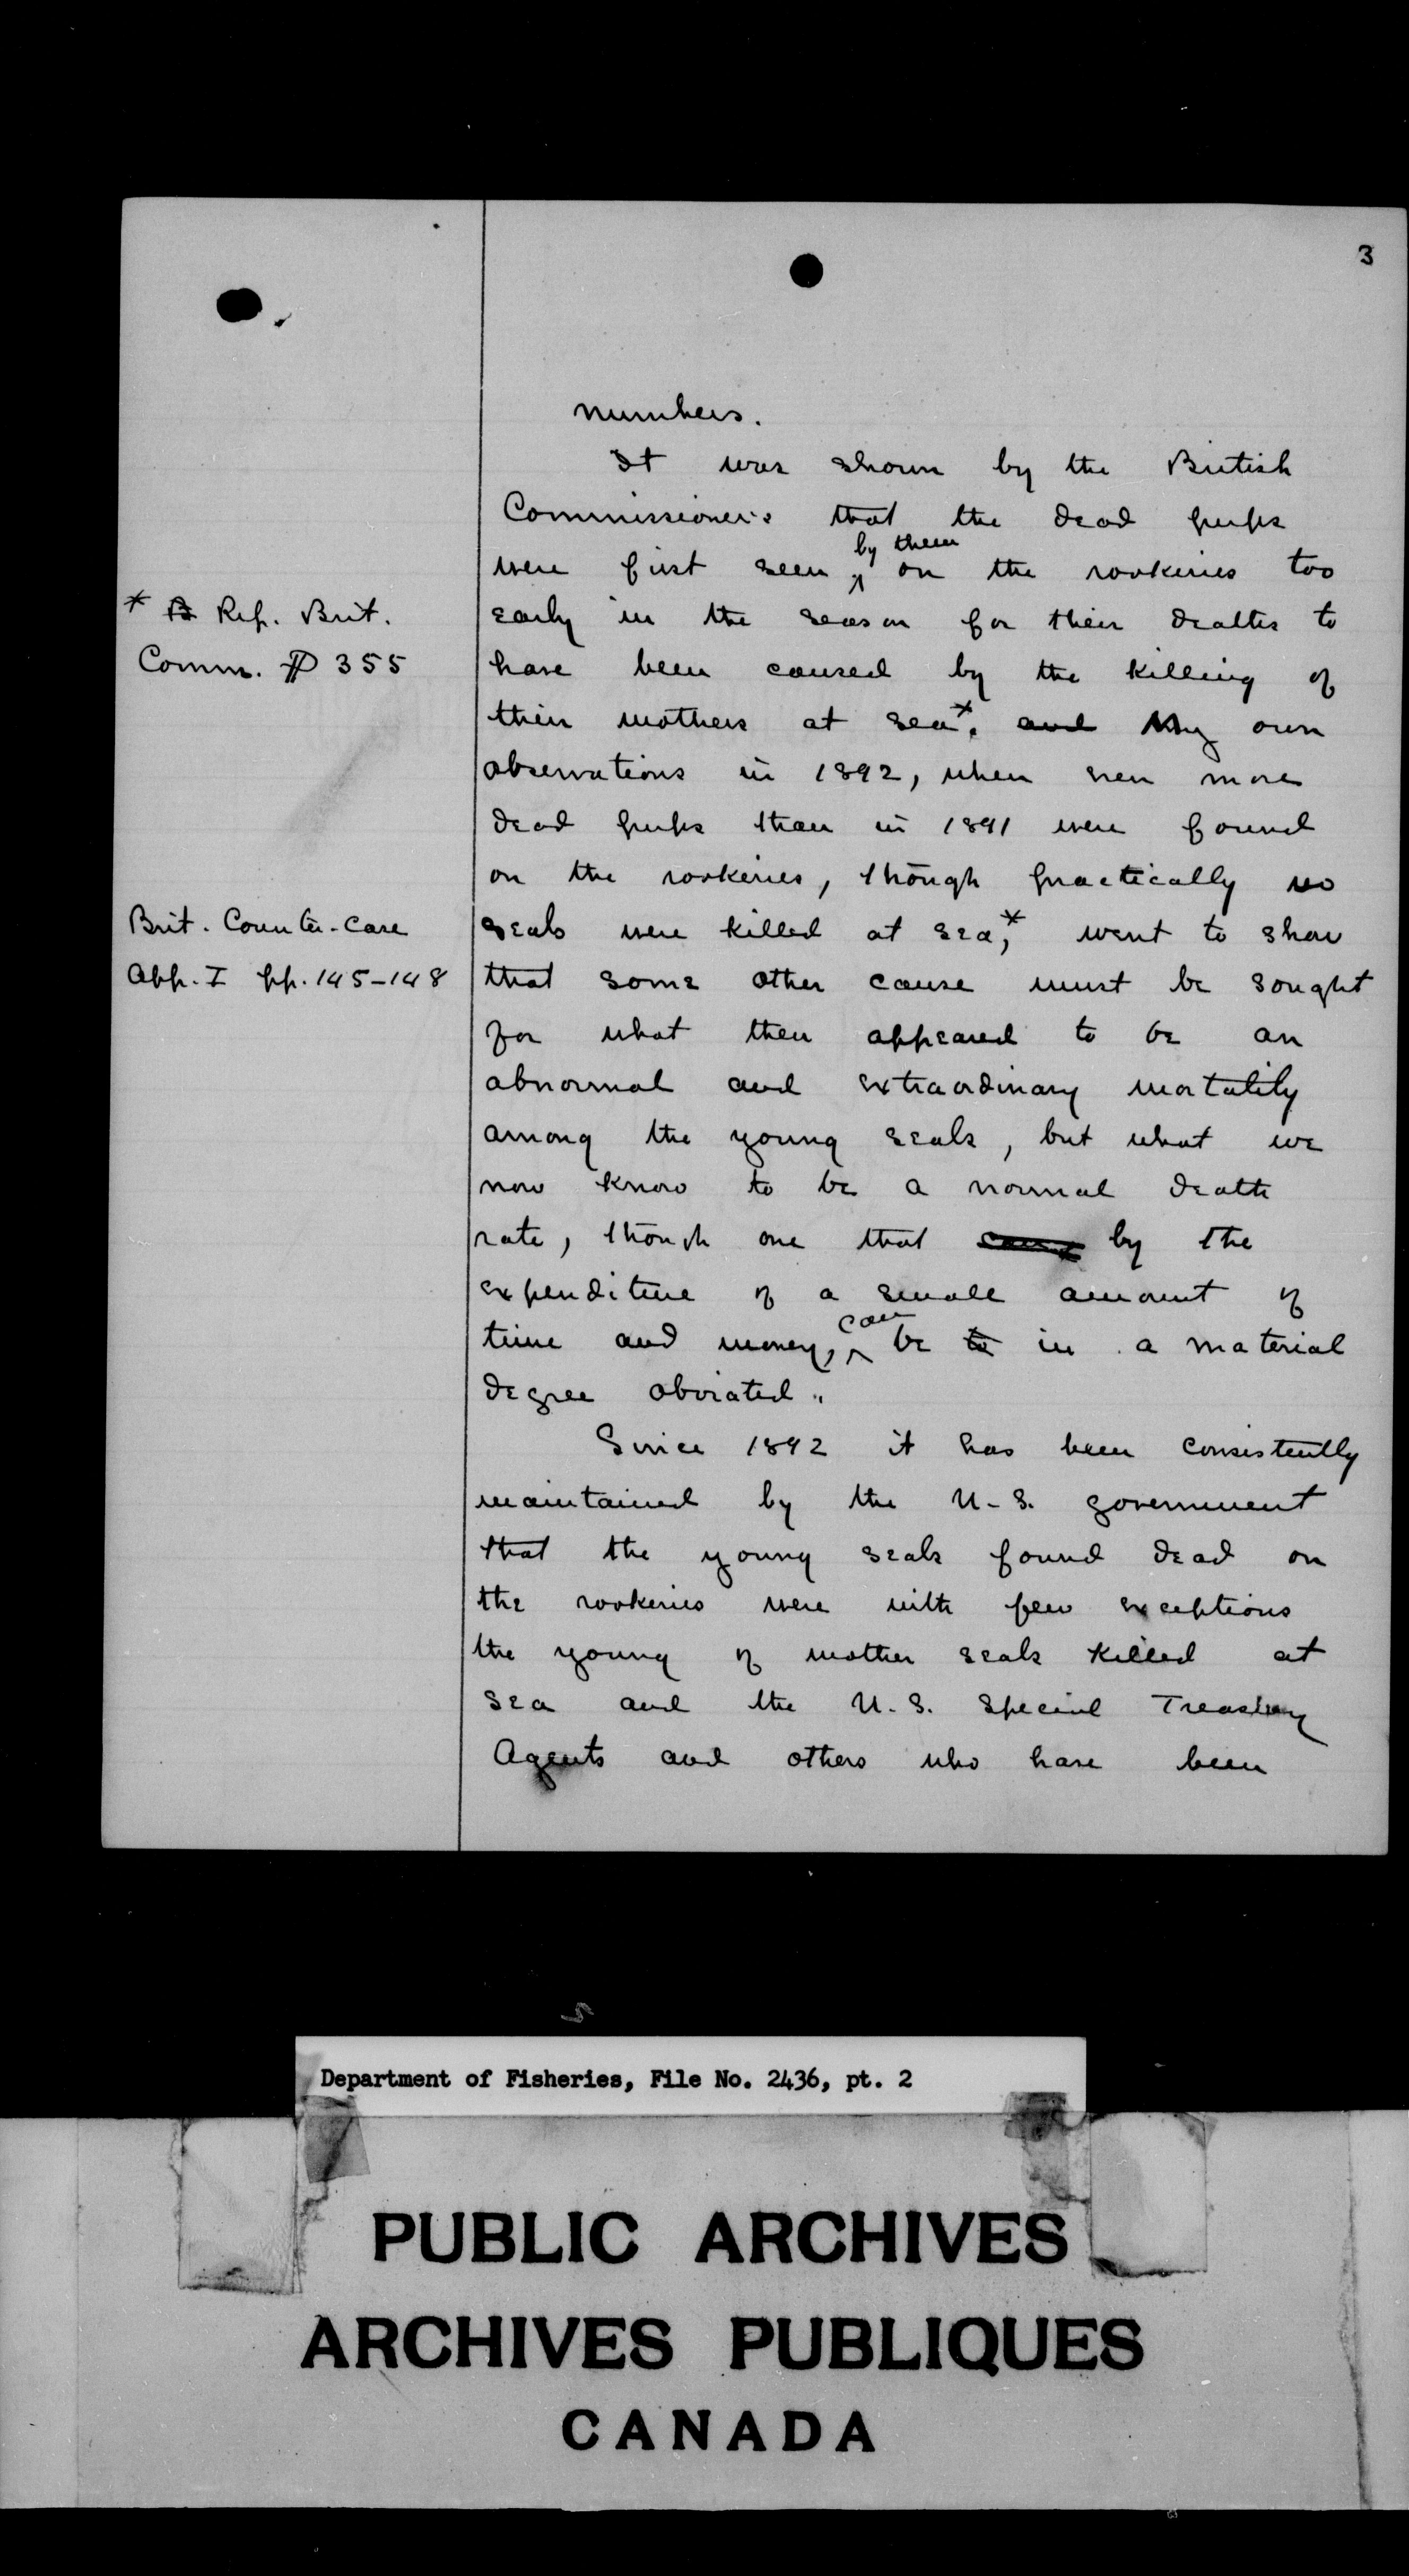 3
numbers.
It was shown by the British
Commissioners that the dead pups
were first seen by them on the rookeries too
early in the season for their deaths to
* B Rep. Brit.
Comm. ¶ 355
have been caused by the killing of
their mothers at sea*. and My own
observations in 1892, when even more
dead pups than in 1891 were found
on the rookeries, though practically no
Brit. Counter-Case
App. I pp. 145-148
seals were killed at sea,* went to show
that some other cause must be sought
for what then appeared to be an
abnormal and extraordinary mortality
among the young seals, but what we
now know to be a normal death
rate, though one that by the
expenditure of a small amount of
time and money, can be to in a material
degree obviated.
Since 1892 it has been consistently
maintained by the U.S. government
that the young seals found dead on
the rookeries were with few exceptions
the young of mother seals killed at
sea and the U.S. Special Treasury
Agents and others who have been
Department of Fisheries, File No. 2436, pt. 2
PUBLIC ARCHIVES
ARCHIVES PUBLIQUES
CANADA